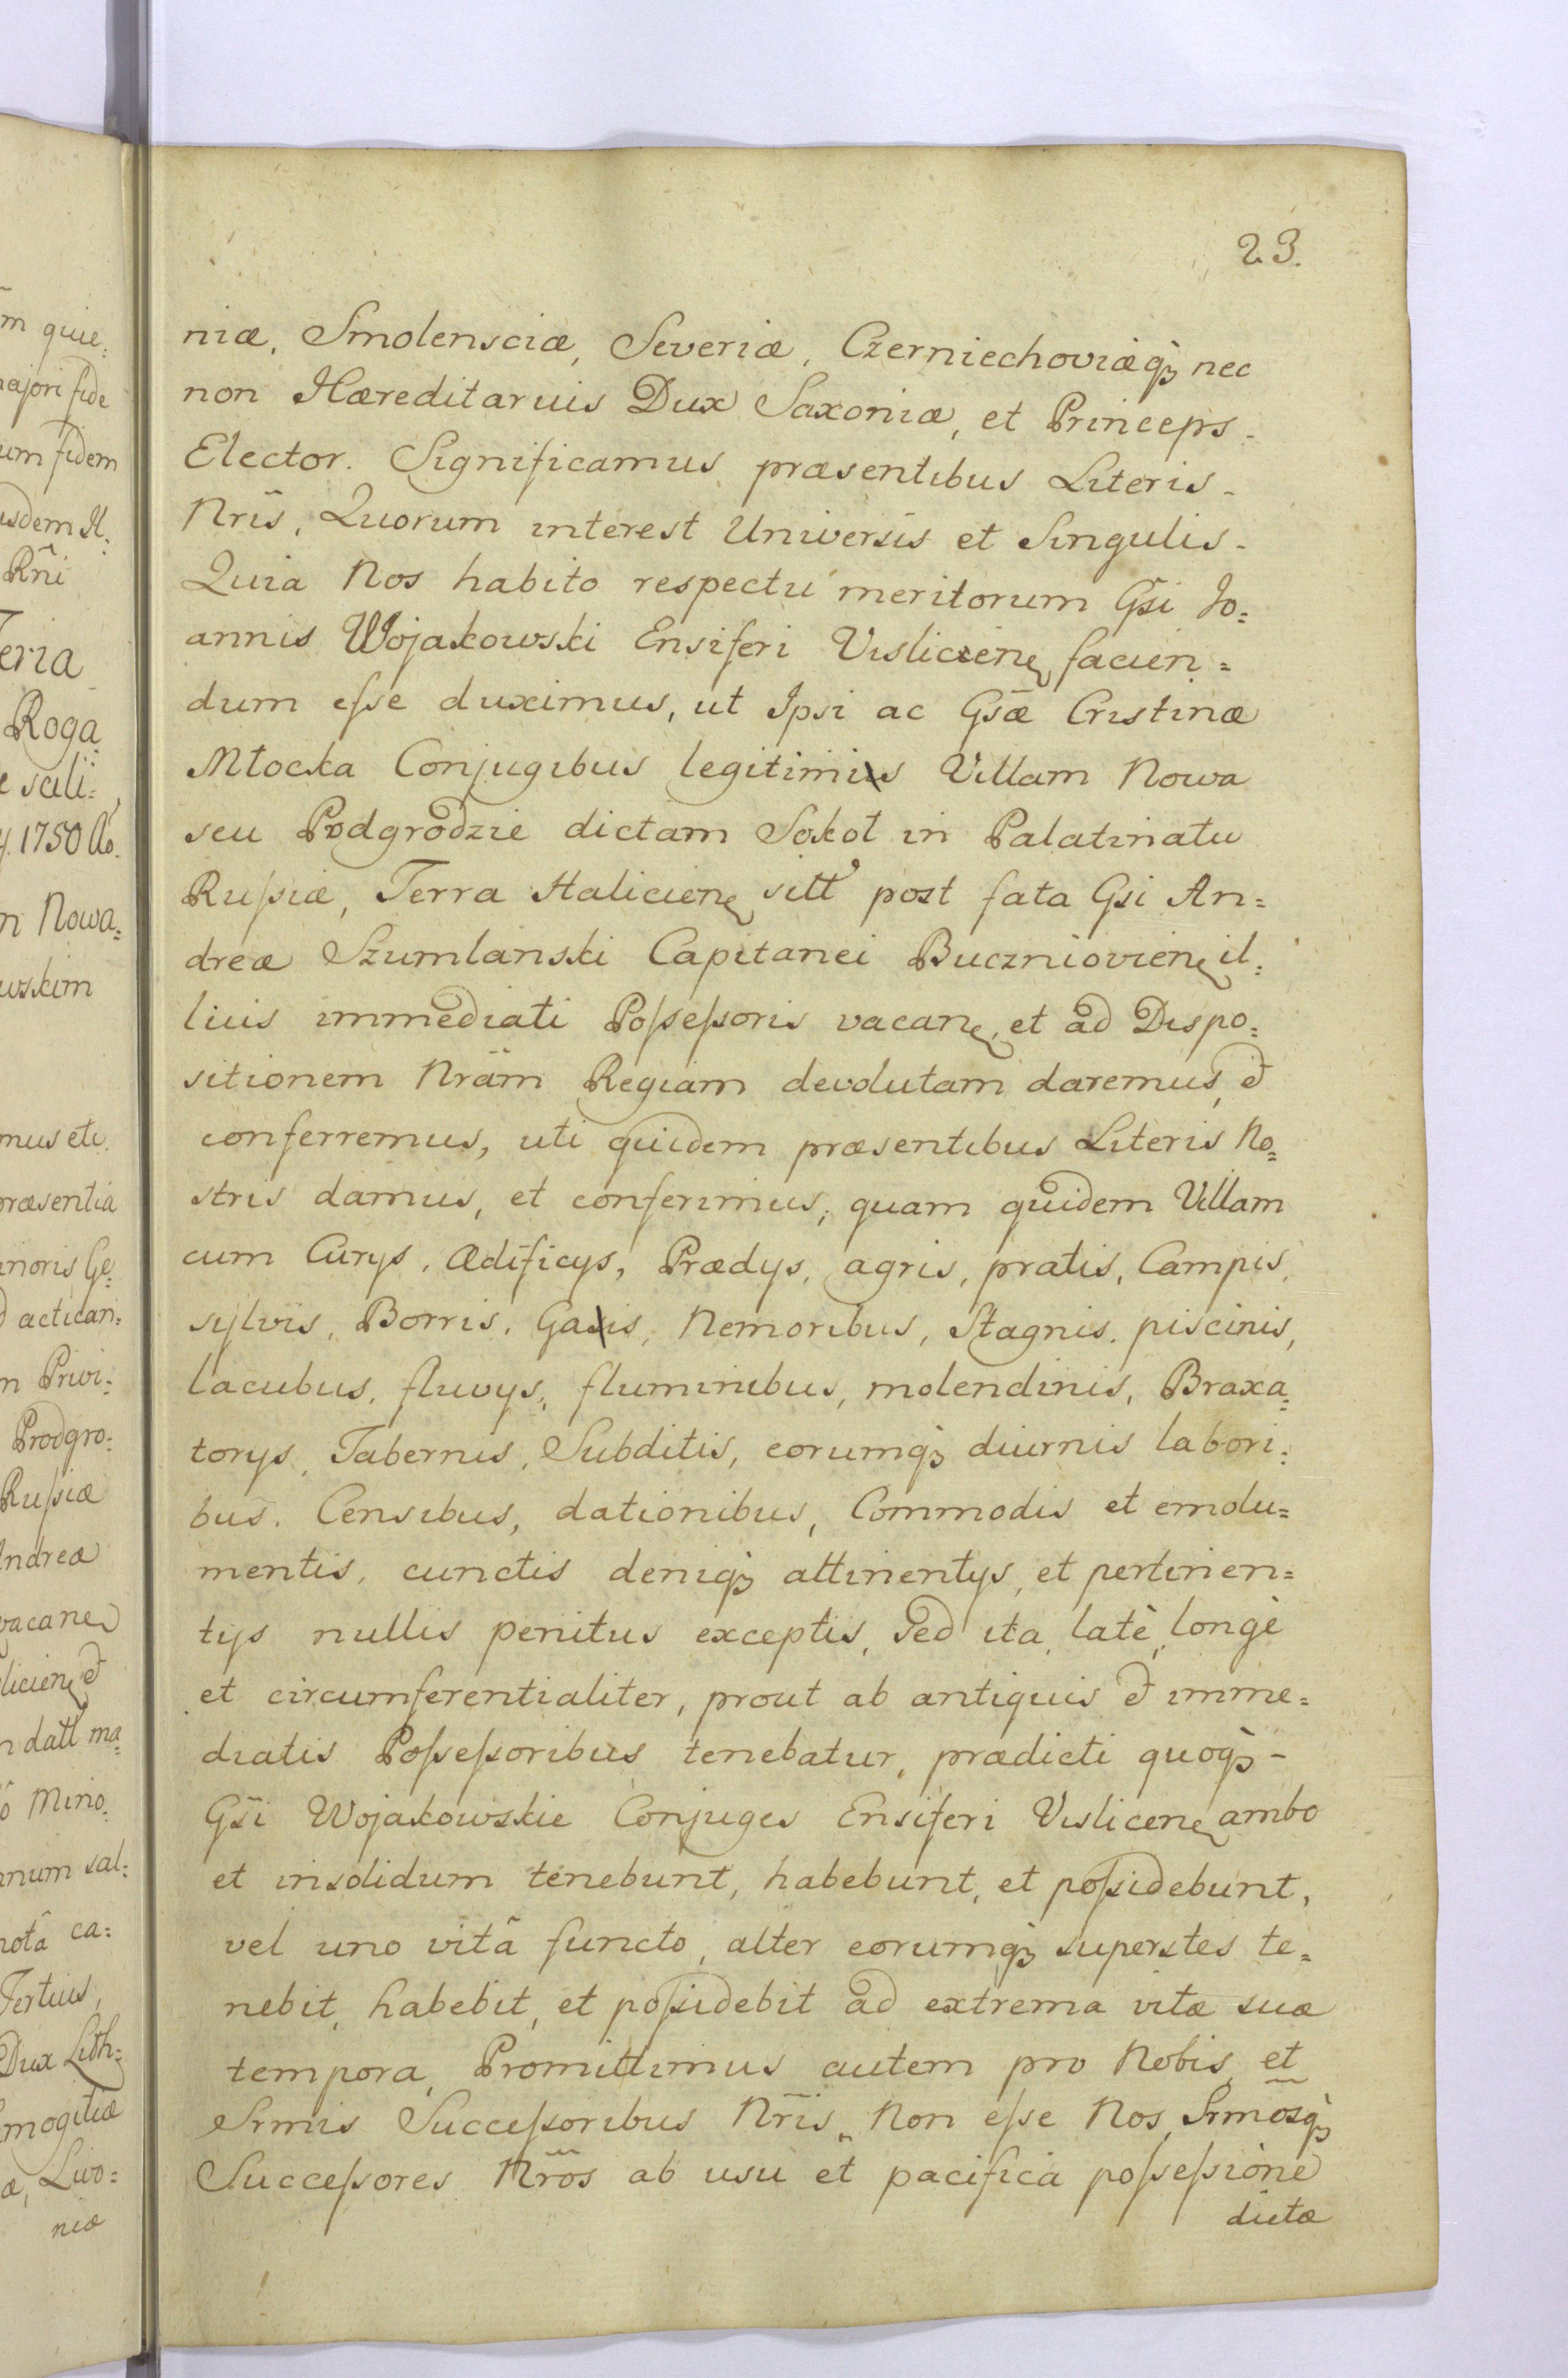 23.
niæ, Smolensciæ, Severiæ, Czerniechoviæq3 nec
non Hæreditarius Dux Saxoniæ, et Princeps -
Elector. Significamus præsentibus Literis -
Nris̃, Quorum interest Universis et Singulis -
Quia Nos habito respectu meritorum Gs̃i Jo=
annis Wojakowski Ensiferi Visliciene facien=
dum eſse duximus, ut Ipsi ac Gs̃æ Cristinæ
Młocka Conjugibus legitimis Villam Nowa
seu Podgrodzie dictam Sokoł in Palatinatu
Ruſsiæ, Terra Haliciene sitt post fata Gsi An=
dreæ Szumlanski Capitanei Bucznioviene il=
lius immediati Poſseſsoris vacane, et ad Dispo=
sitionem Nrãm Regiam devolutam daremus, et
conferremus, uti quidem præsentibus Literis No=
stris damus, et conferimus, quam quidem Villam
cum Curys, Ædificys, Prædys, agris, pratis, Campis,
sylvis, Borris, Gais, Nemoribus, Stagnis, piscinis,
lacubus, fluvys, fluminibus, molendinis, Braxa=
torys, Tabernis, Subditis, eorumq3 diurnis labori=
bus. Censibus, dationibus, Commodis et emolu=
mentis, cunctis deniq3 attinentys, et pertinen=
tys nullis penitus exceptis, sed ita latè, longè
et circumferentialiter, prout ab antiquis et imme=
diatis Poſseſsoribus tenebatur, prædicti quoq3 -
Gs̃i Wojakowskie Conjuges Ensiferi Vislicene ambo
et insolidum tenebunt, habebunt, et poſsidebunt,
vel uno vitâ functo, alter eorumq3 superstes te=
nebit, habebit, et poſsidebit ad extrema vitæ suæ
tempora, Promittimus autem pro Nobis, et
Srmis Succeſsoribus Nr̃is, Non eſse Nos, Srmosq3
Succeſsores Nr̃os ab usu et pacifica poſseſsione
dictæ